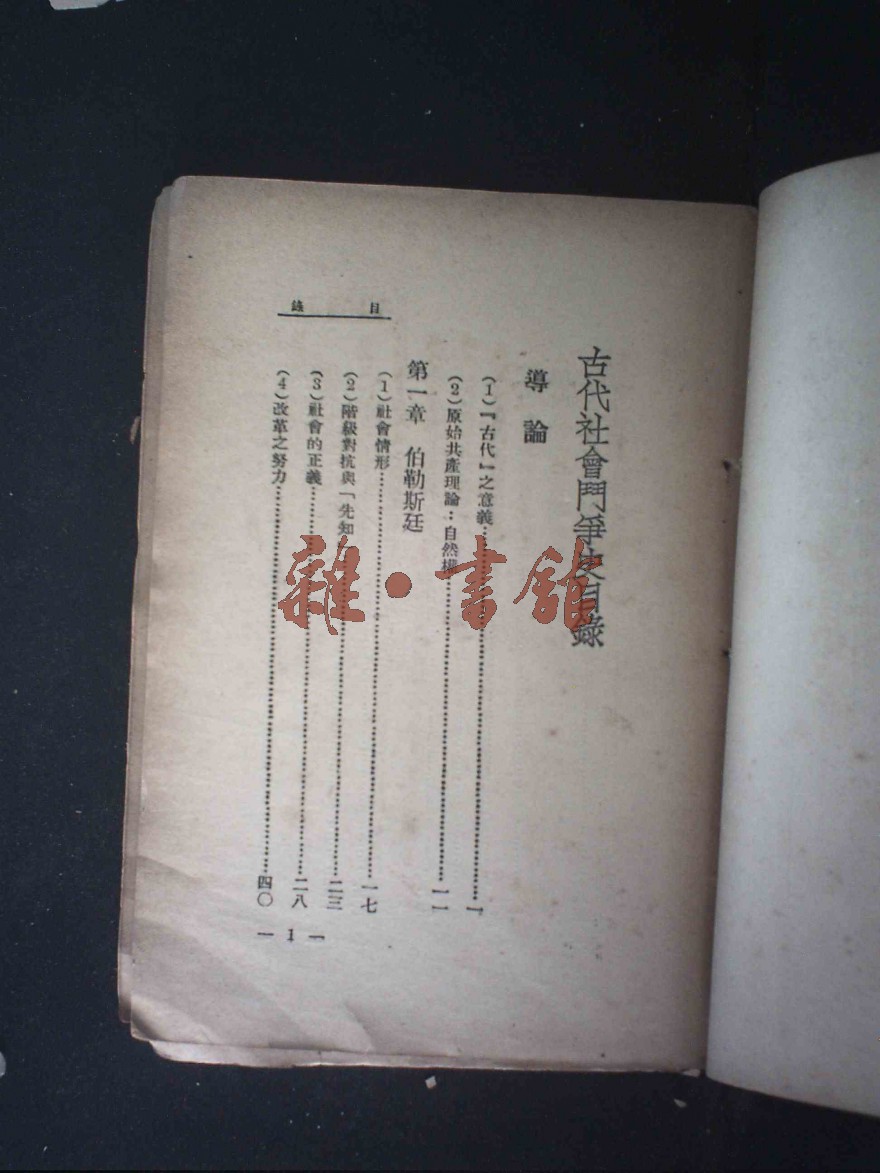 目錄
古代社會鬥爭史目錄
導論
(1)『古代』之意義……一
(2)原始共產理論：自然權……一一
第一章 伯勒斯廷
(1)社會情形……一七
(2)階級對抗與「先知……二三
(3)社會的正義……二八
(4)改革之努力……四〇
— 1 —
雜·書館